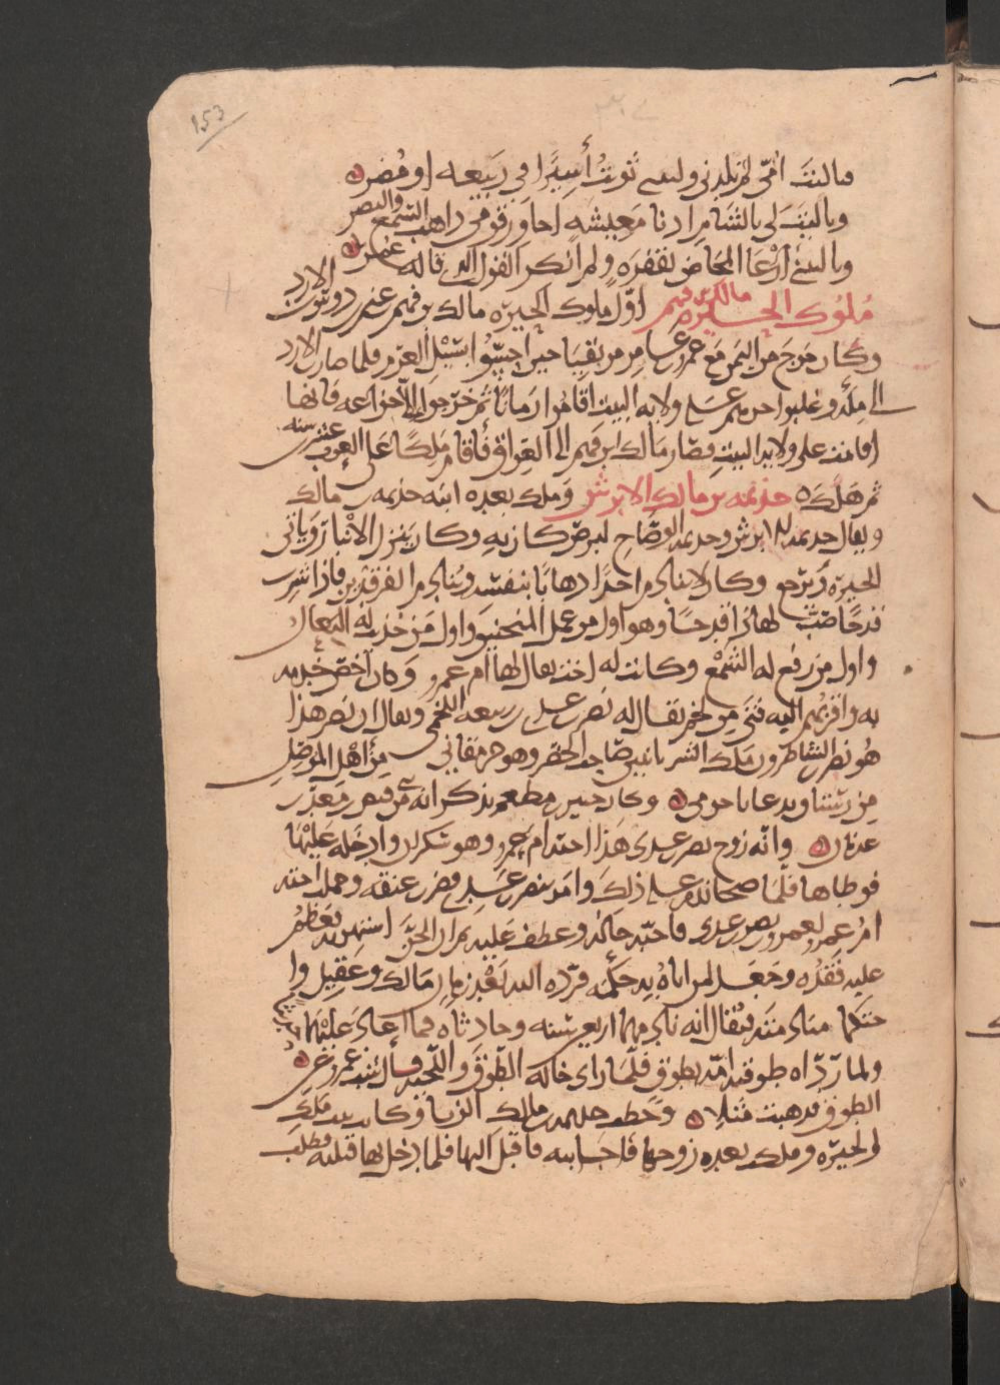 153
فياليت امّي لم تلدني وليتني ثويتُ أسيرًا في ربيعه او مُضر
وياليت لي بالشام ادنا معيشه اجاور قومي ذاهب السّمع والبصر
وياليتني ارعا المخاض بقفره ولم انكر القول الذي قاله عمر
مُلوك الحيره مالك بن فهم اوّل ملوك الحيره مالك بن فهم بن غنم بن دوس الازد
وكان خرج من اليمن مع عمرو بن عامر مزيقيا حين احسّوا بسيل العرم فلما صارت الازد
الى مكّه وغلبوا جرهم على ولاية البيت اقاموا زمانًا ثم خرجوا الا خزاعه فانها
اقامت على ولاية البيت فصار مالك ابن فهم الى العراق فأقام مَلِكًا على العرب عشرين سنه
ثم هلك جذيمه بن مالك الابرش وملك بعده ابنه جذيمه بن مالك
ويقال جذيمه الابرش وجذيمه الوضّاح لبرص كان به وكان ينزل الانبار ويأتي
الحيره ويرجع وكان لا ينادم احدًا ذهابًا بنفسه وينادم الفرقدين فاذا شرب
قدحًا صبّ لهاذا قدحًا وهو اول من عمل المنجنيق واول من حُذيت له النعال
واول من رفع له الشمع وكانت له اخت يقال لها ام عمرو وكان اخصّ خدمه
به واقربهم اليه فتى من لخم يقال له نصر بن عدي بن ربيعه اللخمي ويقال ان نصر هذا
هُو نصر بن الساطرون ملك السريانيين صاحب الحضر وهو جرمقاني من أهل الموصل
من رستاق يدعا باجرمي وكان جبير بن مطعم يذكر انه من قنص بن معد بن
عدنان وانّه زوج نصر بن عدي هذا اخته ام عمرو وهو سكران وادخله عليها
فوطاها فلمّا صحا ندم على ذلك وامر بنصر بن عدي فضرب عنقه وحملت اخته
امُ عمرو لعمرو بن نصر بن عدي فاحبّه خاله وعطف عليه ثم ان الجنّ استهوته فعظُم
عليه فقدُه وجعل لمن اتاهُ به حكمه فردّه اليه بعد زمان مالك وعقيل وا
حتكما منادمته فيقال انه نادمهما اربعين سنه وحادثاه فما اعادى عليهما
ولما ردّاه طوقته امّه بطوق فلمّا راى خاله الطّوق واللّحيه قال شب عمرو عن
الطوق فذهبت مثلا وخطب جذيمه بن مالك الزبا وكانت بنت ملك
الحيره وملكت بعده زوجها فاجابته فاقبل اليها فلما دخل بها قتلته فطلب